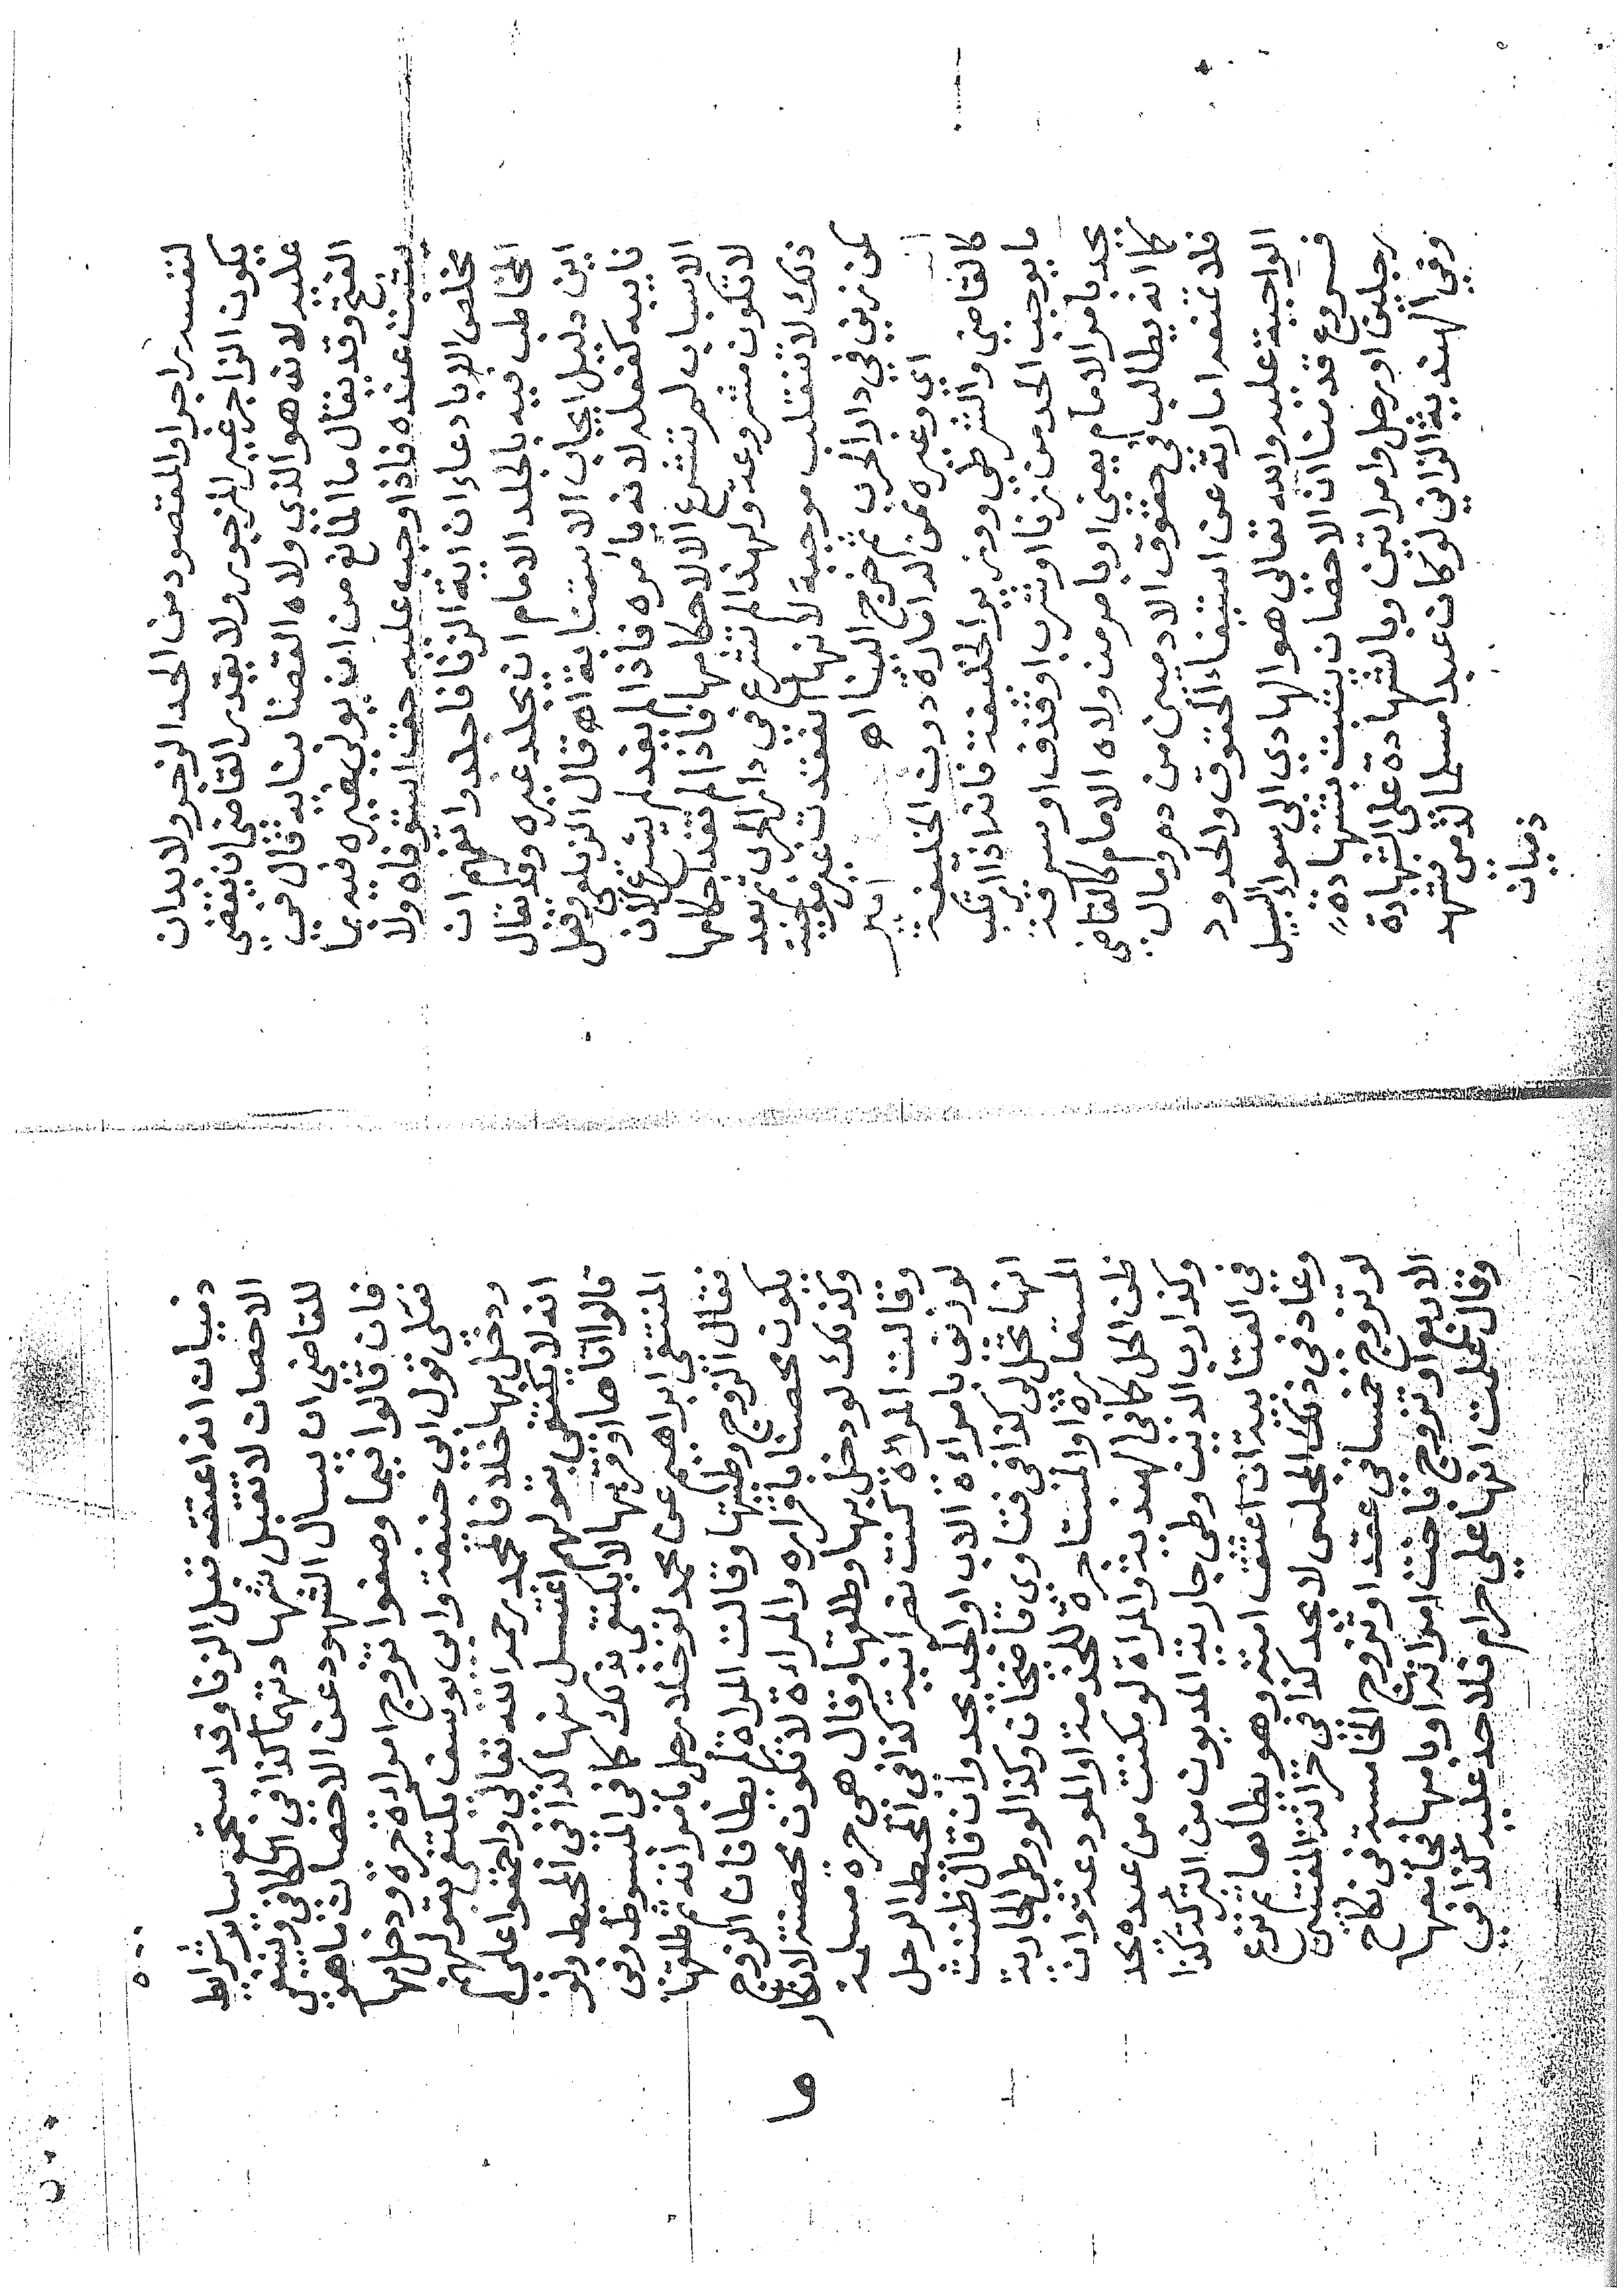 لنفسه زاجرا والمقصود من الحد الزجر ولا بد ان
يكون الزاجر غير المزجور ولا يقدر القاضي ان يقضي
عليه لانه هو الذي ولاه القضا نيابة قال في
الفتح وقد يقال ما المانع من ان يولي غيره فيه بما
يثبت عنده فاذا اوجبه عليه حقا استوفاه ولا
مخلص الا بادعاء ان اية الزنا فاجلدوا تفهم ان
المخاطب فيه بالجلد الامام ان يجلد غيره وقد يقال
اين دليل ايجاب الاستنابة اه قال الزيلعي وفعل
نايبه كفعله لانه بامره فاذا لم يفد لم يشرع لان
الاسباب لم تشرع الا لاحكامها فاذا لم تفد احكامها
لا تكون مشروعة ولهذا لم تشرع في دار الحرب ثم بعد
ذلك لا تنقلب موجبة لانها انعقدت غير موجبة
كمن زنى في دار الحرب ثم خرج الينا اه
اي وغيره ممن له امارة دون الخليفة امير
كالقاضي والشرطي ووزير الخليفة فانه اذا ارتكب
ما يوجب الحد من زنا او شرب او قذف او سرقة
يحد بامر الامام يعني او بامر من ولاه الامام كالقاضي
كما انه يطالب في حقوق الادميين من دم ومال
فلا تمنع امارته عن استيفاء الحقوق والحدود
الواجبة عليه والله تعالى هو الهادي الى سواء السبيل
فروع قدمنا ان الاحصان يثبت بشهادة
رجلين او رجل وامراتين وبالشهادة على الشهادة
وفي الهندية الزاني لو كان عبدا مسلما لذمي فشهد
ذميان
ذميان انه اعتقه قبل الزنا وقد استجمع سائر شرائط
الاحصان لا تقبل شهادتهما كذا في الكافي وينبغي
للقاضي ان يسال الشهود عن الاحصان ما هو
فان قالوا فيما وصفوا تزوج امراة حرة ودخل بها
فعلى قول ابي حنيفة وابي يوسف يكتفي بقولهم
ودخل بها خلافا لمحمد رحمه الله تعالى واجمعوا على
انه لا يكتفى بقولهم اغتسل منها كذا في المحيط ولو
قالوا اتاها او قربها لا يكتفى بذلك كما في المبسوط وفي
المنتقى ابراهيم عن محمد لو خلا رجل بامراته ثم طلقها
فقال الزوج وطئتها وقالت المراة لم يطا فان الزوج
يكون محصنا باقراره والمراة لا تكون محصنة لانكار
وكذلك لو دخل بها وطلقها وقال هي حرة مسلمة
وقالت المراة كنت نصرانية كذا في المحيط الرجل
لو زنى بامراة الاب او الجد يحد وان قال ظننت
انها تحل لي كذا في فتاوي قاضخان وكذا لو وطئ الجارية
المستعارة او المستاجرة للخدمة او المودعة وان
ظن الحل كما في الهندية والمراة لو مكنت من عبده يحد
وكذا رب الدين وطئ جارية المديون من التركة كذا
في العتابية ان اعتق امته وهو يطاها ثم نزع
وعاد في ذلك المجلس لا يحد كذا في خزانة المفتين
لو تزوج خمسا في عقد او تزوج الخامسة في نكاح
الاربع او تزوج باخت امراته او بامها فجامعها
وقال علمت انها علي حرام فلا حد عليه كذا في